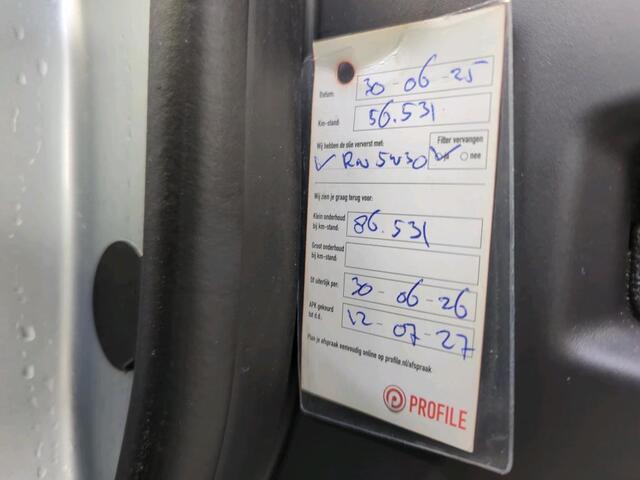 Datum: 30-06-25
Km-stand: 56.531
Wij hebben de olie ververst met: Filter vervangen
RN 5W30 ja nee
Wij zien je graag terug voor:
Klein onderhoud bij km-stand: 86.531
Groot onderhoud bij km-stand:
Of uiterlijk per: 30-06-26
APK gekeurd tot d.d. 12-07-27
Plan je afspraak eenvoudig online op profile.nl/afspraak
PROFILE